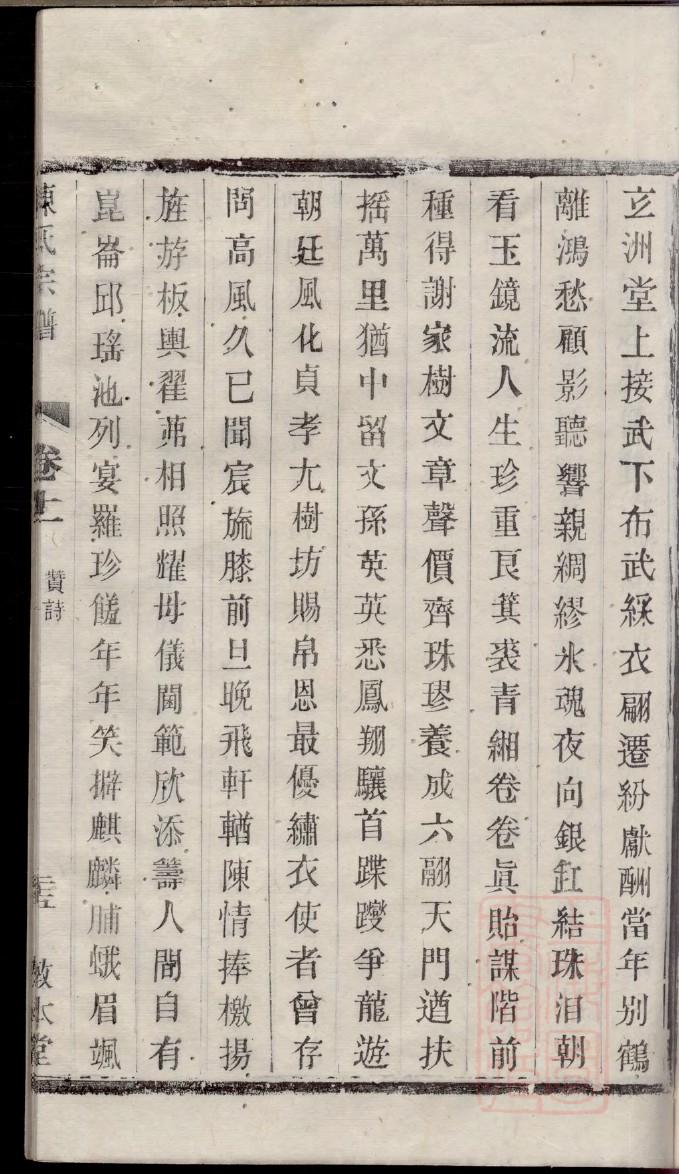 玄洲堂上接武下布武綵衣翩遷紛獻酬當年别鶴
離鴻愁顧影聽響親綢繆氷魂夜向銀缸結珠泪朝
看玉鏡流人生珍重艮箕裘青緗卷卷眞貽謀階前
種得謝家樹文章聲價齊珠璆養成六翮天門遒扶
摇萬里猶中留文孫英英悉鳳翔驤首蹀躞爭龍遊
朝廷風化貞孝尤樹坊賜帛恩最優繡衣使者曾存
問高風久已聞宸旒膝前旦晚飛軒輶陳情捧檄揚
旌斿板輿翟茀相照耀母儀閫範欣添籌人間自有
崑崙邱瑤池列宴羅珍饈年年笑擗麒麟脯蛾眉颯
陳氏宗譜
卷十一
贊詩
敦本堂